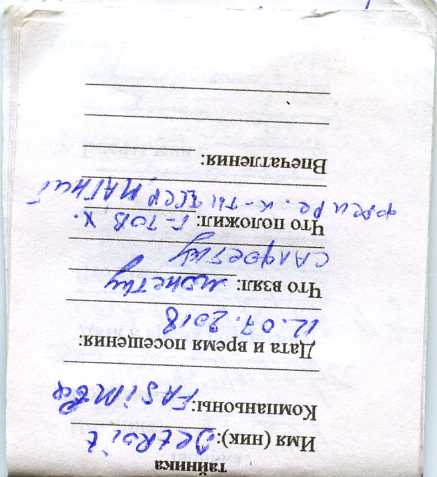 тайника
Имя (ник): Detroit
Компаньоны: FASIMBA
Дата и время посещения:
12.07.2018
Что взял: монетку
салфетку
Что положил:
К-ТЫ СССР, МАГНИТ
Впечатления: